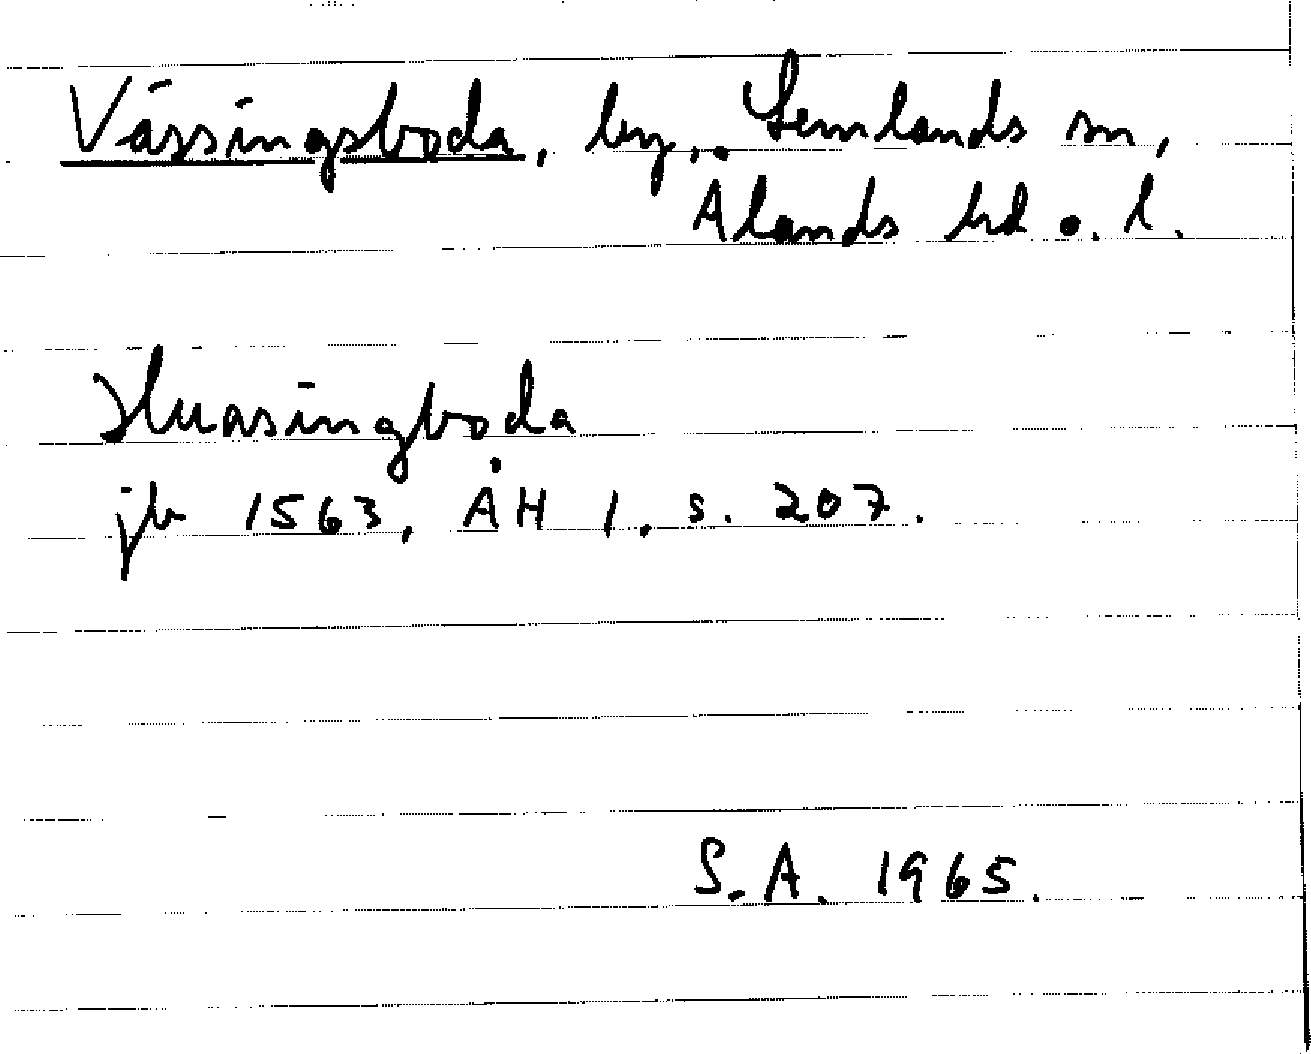 Vässingsboda, by, Lemlands sn,
Ålands hd o. l.
Huasingboda
jb 1563, ÅH 1, s. 207.
S.A. 1965.